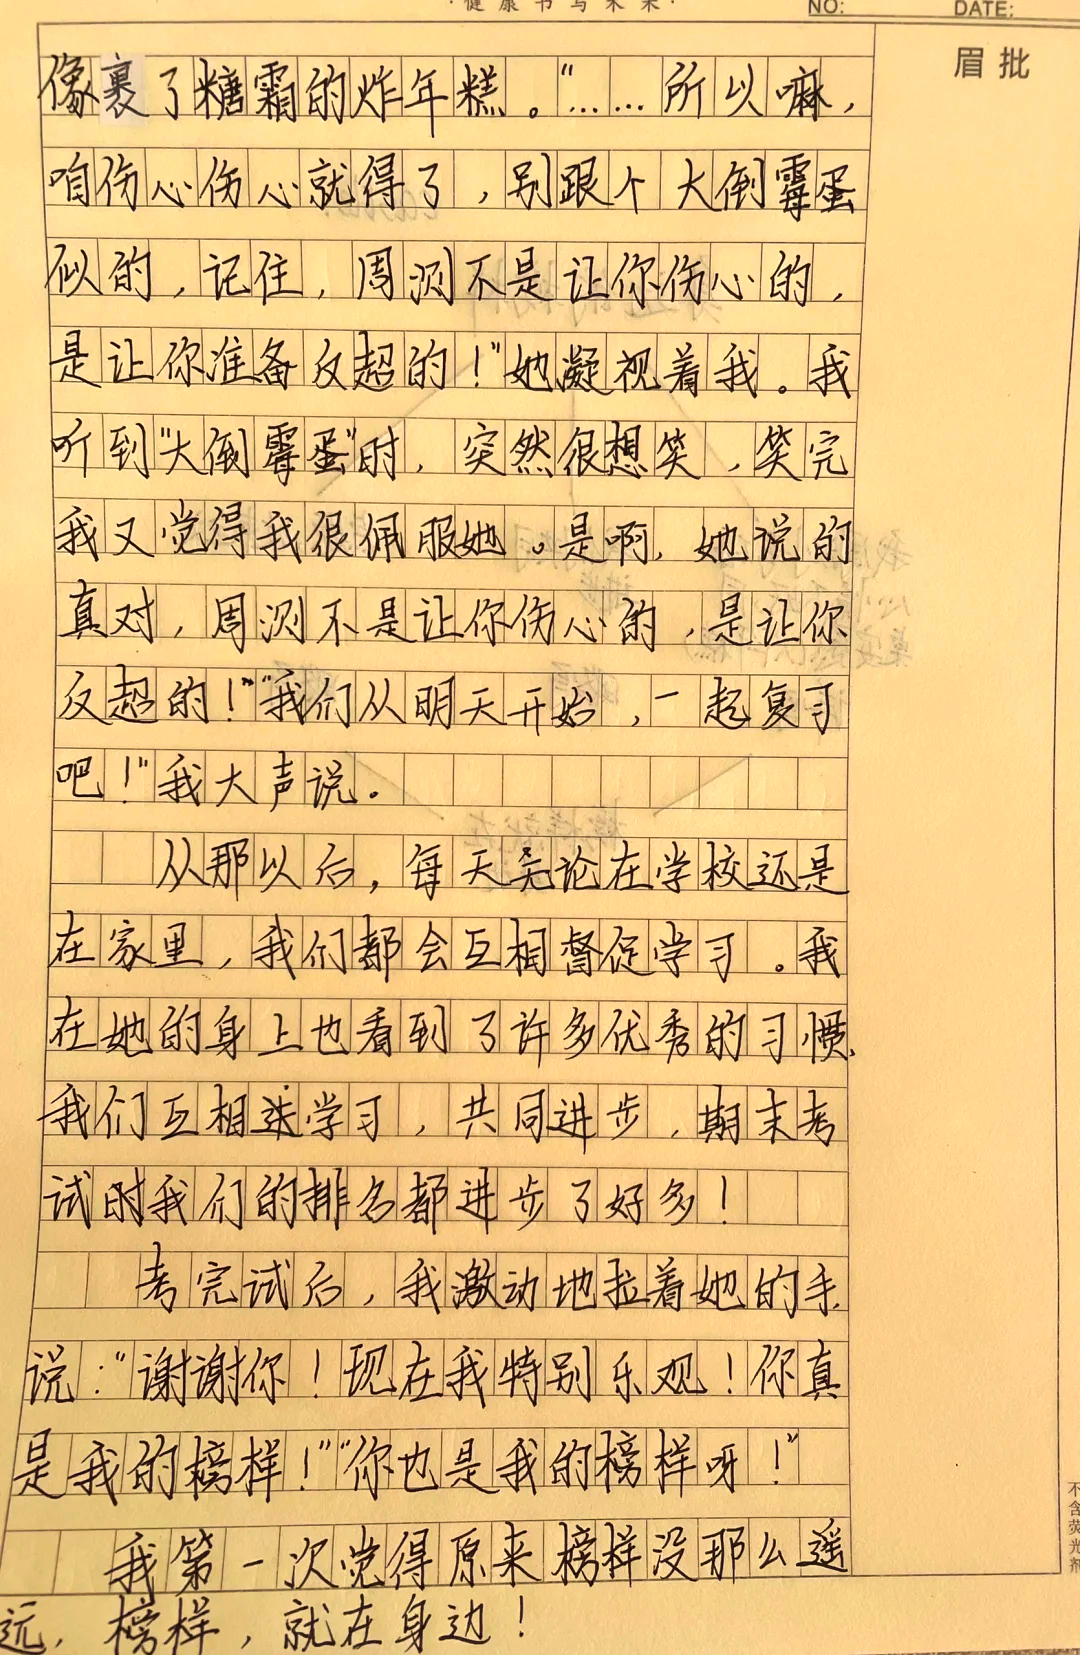 ·健康书写未来·
NO:
DATE:
眉批
像裹了糖霜的炸年糕。“……所以嘛，
咱伤心伤心就得了，别跟个大倒霉蛋
似的，记住，周测不是让你伤心的，
是让你准备反超的！”她凝视着我。我
听到“大倒霉蛋”时，突然很想笑，笑完
我又觉得我很佩服她。是啊，她说的
真对，周测不是让你伤心的，是让你
反超的！”“我们从明天开始，一起复习
吧！”我大声说。
从那以后，每天无论在学校还是
在家里，我们都会互相督促学习。我
在她的身上也看到了许多优秀的习惯，
我们互相学习，共同进步，期末考
试时我们的排名都进步了好多！
考完试后，我激动地拉着她的手，
说：“谢谢你！现在我特别乐观！你真
是我的榜样！”“你也是我的榜样呀！”
我第一次觉得原来榜样没那么遥
远，榜样，就在身边！
不含荧光剂